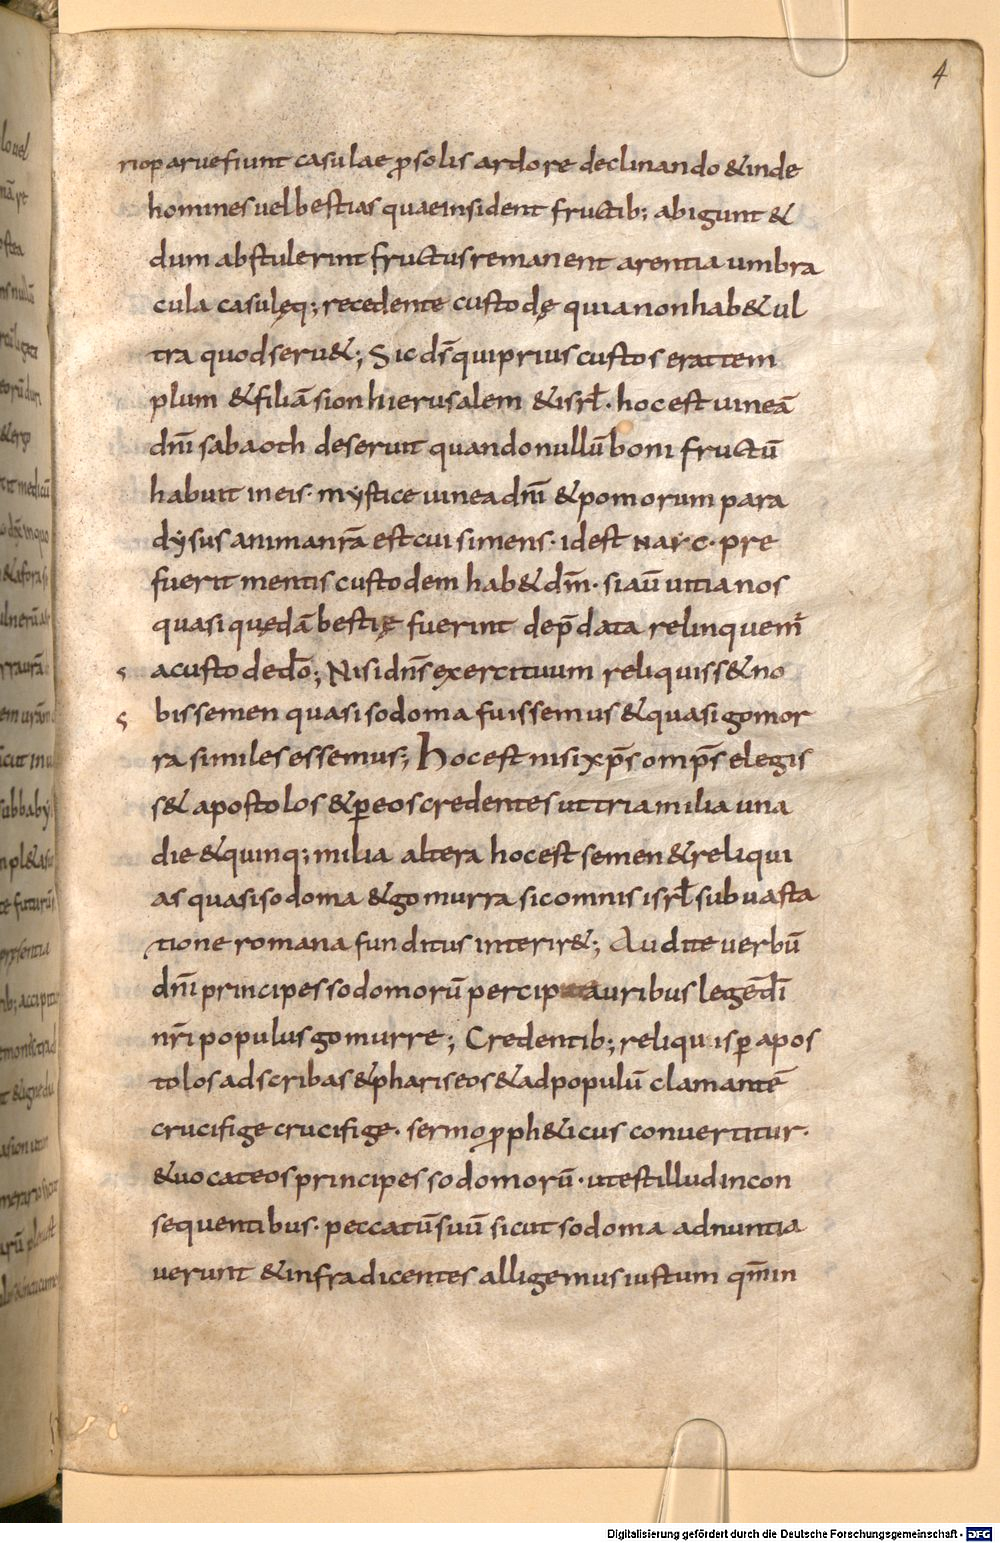 4
riop arue fiunt casulae ꝓ solis ardore declinando & inde
homines uel bestias quae insident fructib; abigunt &
dum abstulerint fructus remanent arentia umbra
cula casulęq; recedente custodę quia non hab& ul
tra quod seru&; Sic ds̄ qui prius custos erat tem
plum & filiā sion hierusalem & isrł · hoc est uineā
dn̄i sabaoth deseruit quando nullū boni fructū
habuit in eis · mystice uinea dn̄i & pomorum para
dysus anima nr̄a est cui si mens · id est NaYC · pre
fuerit mentis custodem hab& dm̄ · si aū uitia nos
quasi quędā bestię fuerint dep̄data relinquem̄
a custode dō; Nisi dn̄s exercituum reliquiss& no
bis semen quasi sodoma fuissemus & quasi gomor
ra similes essemus; Hoc est nisi xp̄s omp̄s elegis
s& apostolos & ꝑ eos credentes ut tria milia una
die & quinq; milia altera hoc est semen & reliqui
as quasi sodoma & gomurra sic omnis isrł sub uasta
tione romana funditus interir&; Audite uerbū
dn̄i principes sodomorū percip auribus legē dī
nr̄i populus gomurre; Credentib; reliquis ꝑ apos
tolos ad scribas & phariseos & ad populū clamantē
crucifige crucifige · sermo ꝓph&icus conuertitur ·
& uocat eos principes sodomorū · ut est illud in con
sequentibus · peccatū suū sicut sodoma adnuntia
uerunt & infra dicentes alligemus iustum qm̄ in
Digitalisierung gefördert durch die Deutsche Forschungsgemeinschaft - DFG